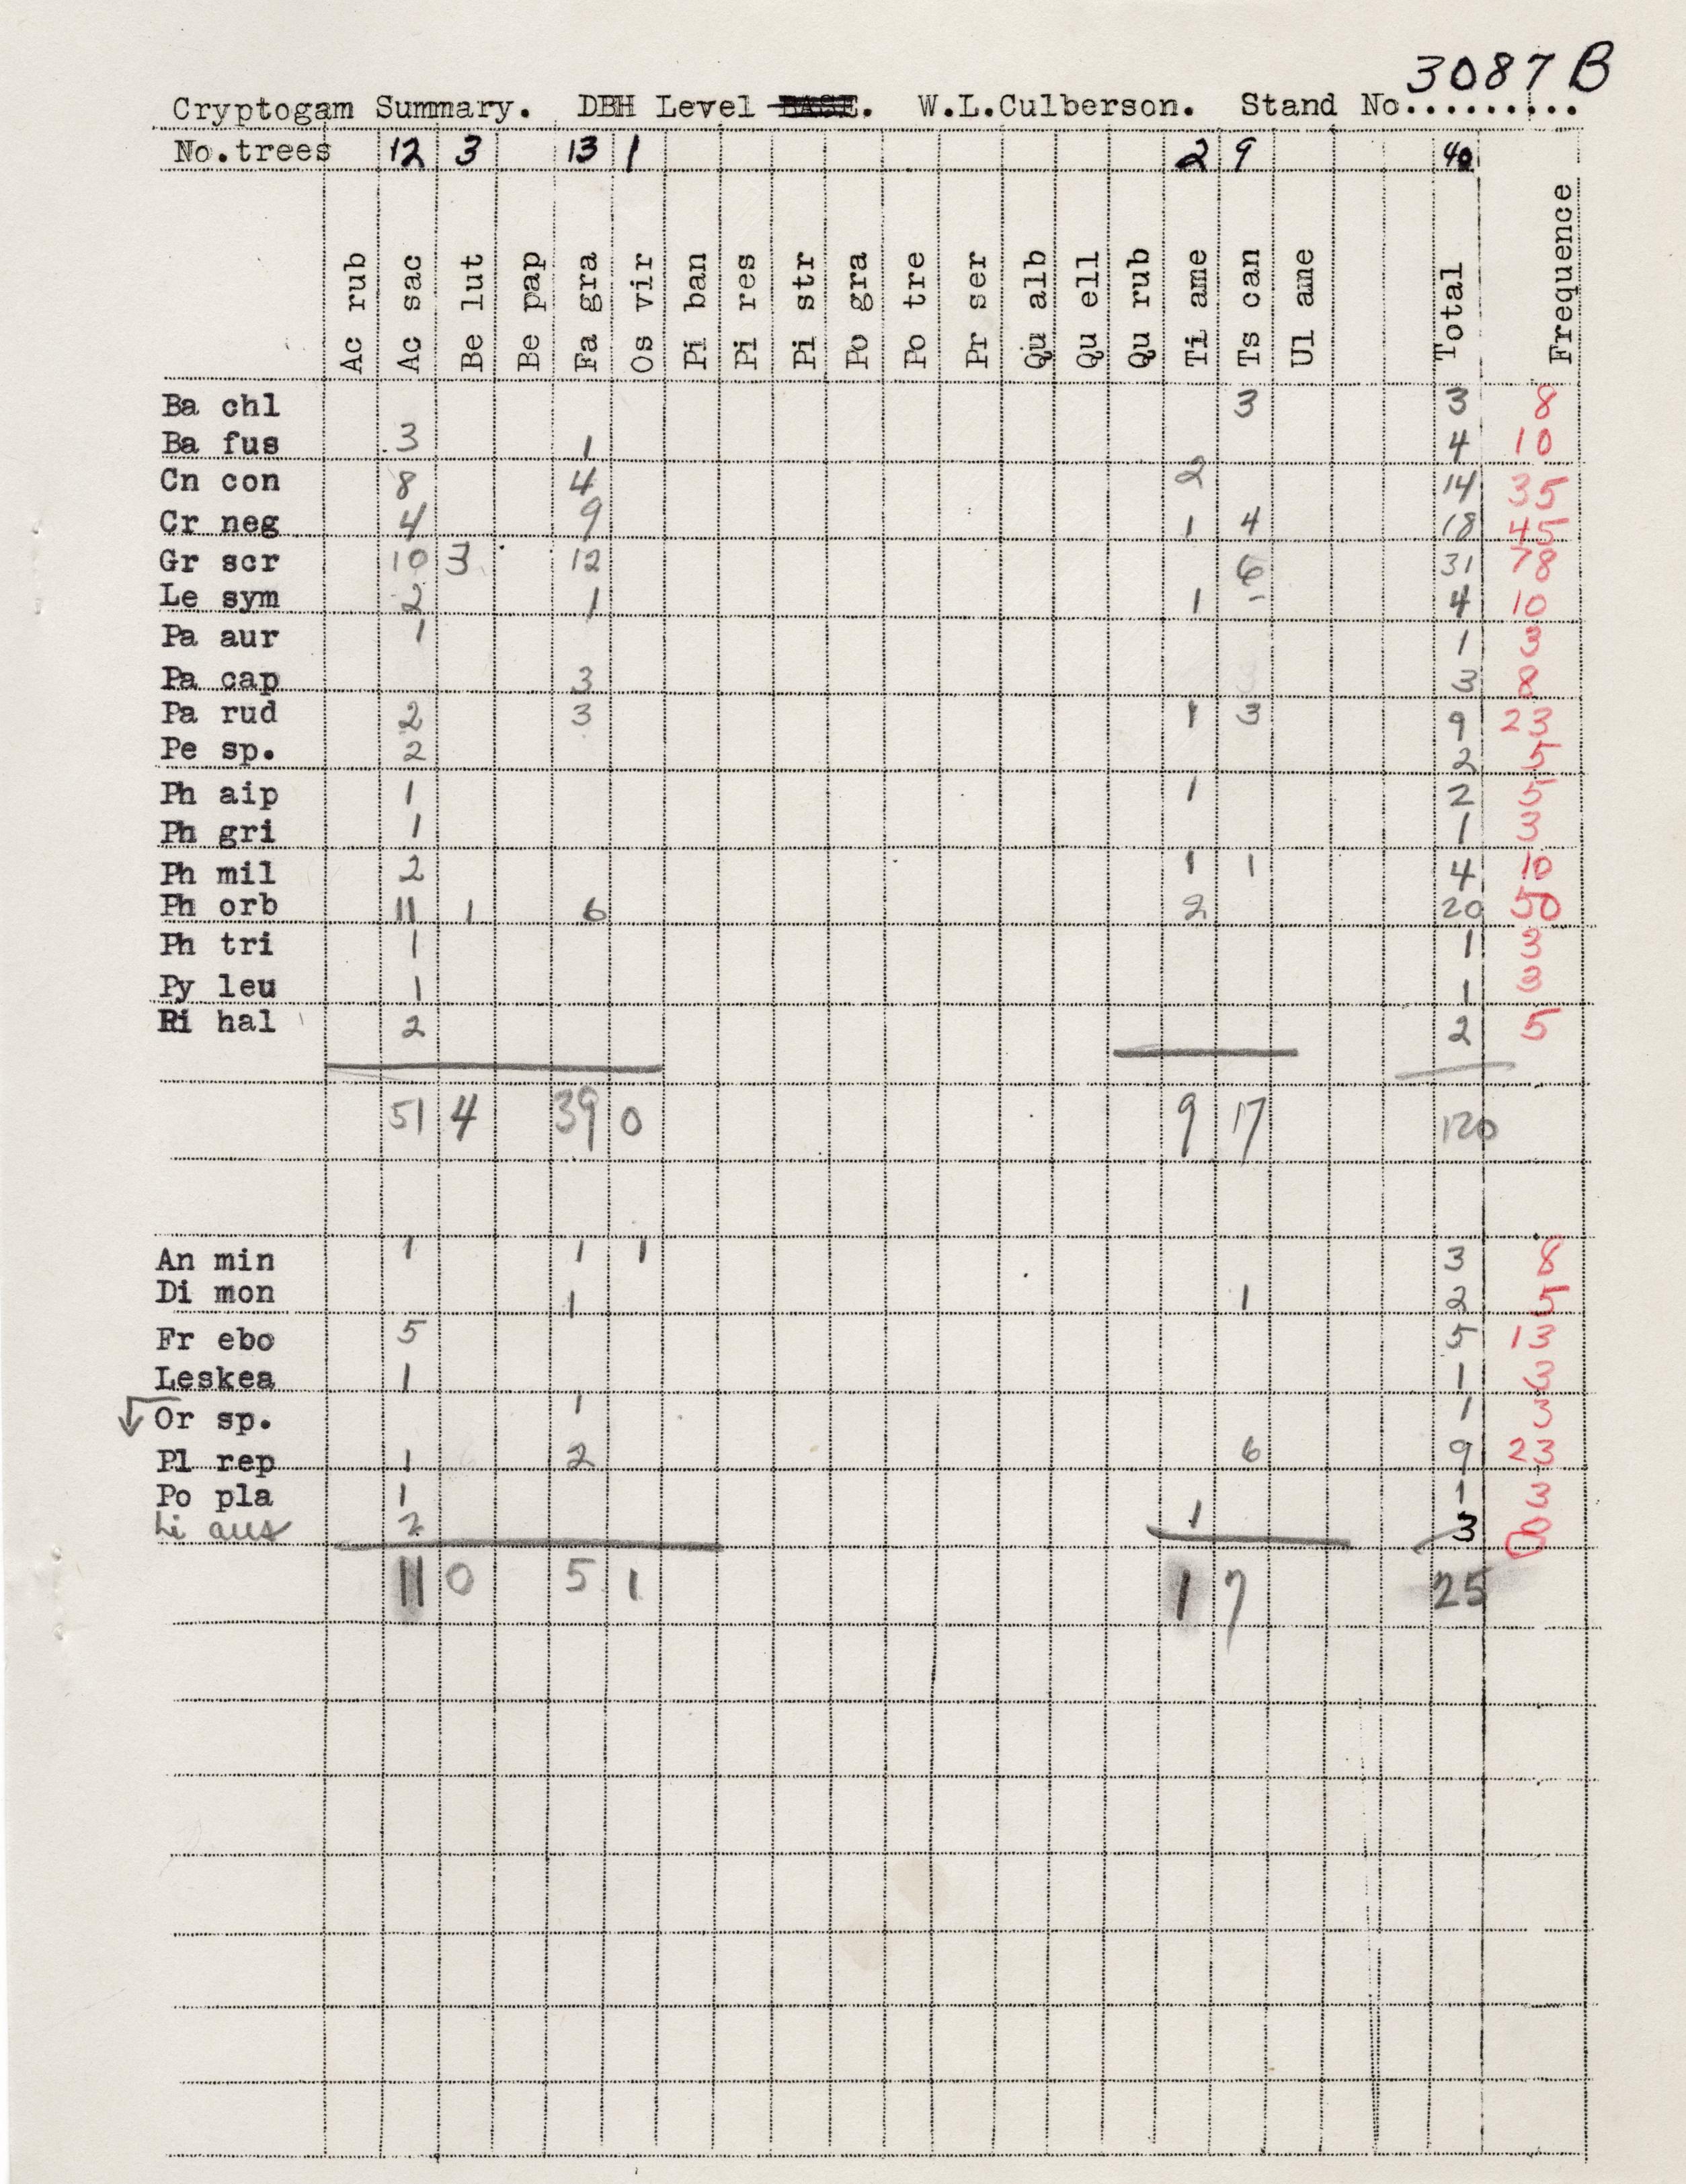 3087 B
Cryptogam Summary. DBH Level BASE. W.L.Culberson. Stand No.........
No.trees 12 3 13 1 2 9 40
Ac rub Ac sac Be lut Be pap Fa gra Os vir Pi ban Pi res Pi str Po gra Po tre Pr ser Qu alb Qu ell Qu rub Ti ame Ts can Ul ame Total Frequence
Ba chl 3 3 8
Ba fus 3 1 4 10
Cn con 8 4 2 14 35
Cr neg 4 9 1 4 18 45
Gr scr 10 3 12 6 31 78
Le sym 2 1 1 - 4 10
Pa aur 1 1 3
Pa cap 3 3 8
Pa rud 2 3 1 3 9 23
Pe sp. 2 2 5
Ph aip 1 1 2 5
Ph gri 1 1 3
Ph mil 2 1 1 4 10
Ph orb 11 1 6 2 20 50
Ph tri 1 1 3
Py leu 1 1 3
Ri hal 2 2 5
51 4 39 0 9 17 120
An min 1 1 1 3 8
Di mon 1 1 2 5
Fr ebo 5 5 13
Leskea 1 1 3
Or sp. 1 1 3
Pl rep 1 2 6 9 23
Po pla 1 1 3
Li aux 2 1 3 8
11 0 5 1 1 7 25